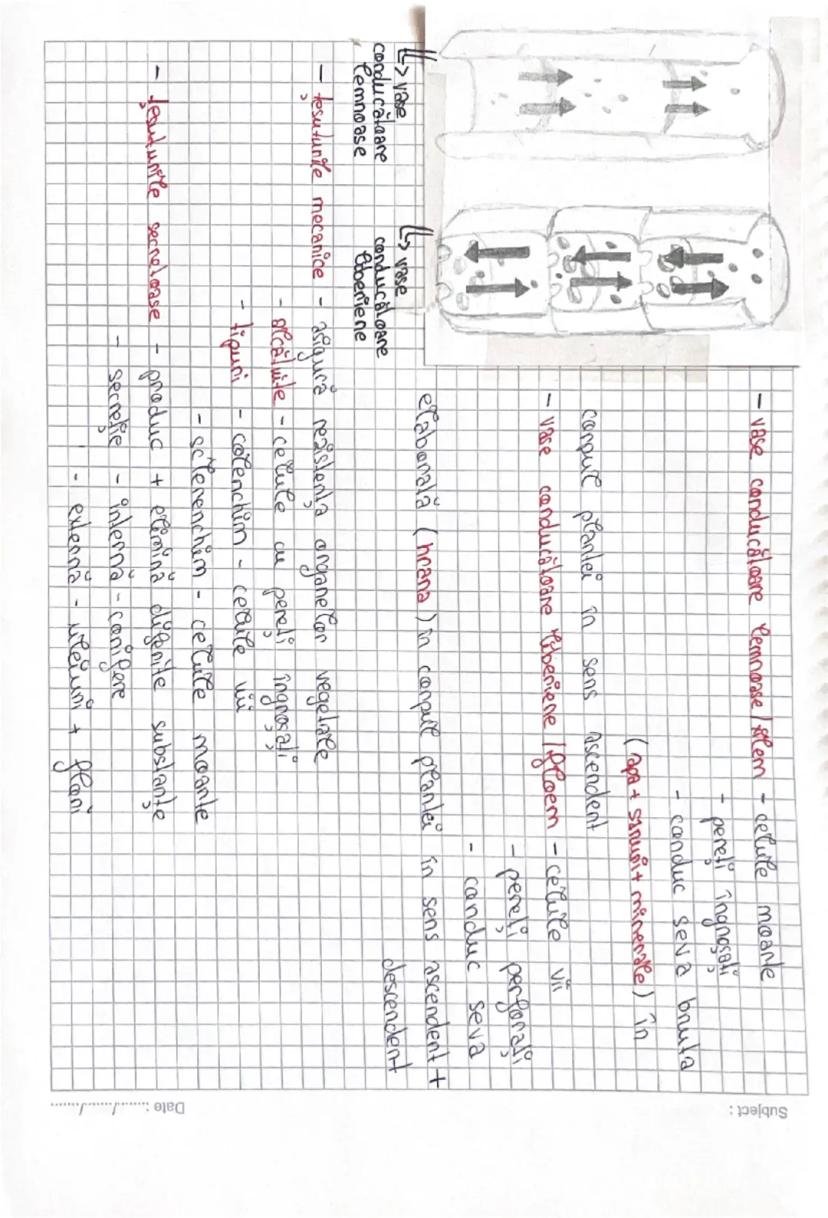 - vase conducătoare lemnoase/xilem - celule moarte
- pereți îngroșați
- conduc seva brută
(apa + săruri + minerale) în
corpul plantei în sens ascendent
- vase conducătoare liberiene/floem - celule vii
- pereți perforați
- conduc seva
elaborată (hrana) în corpul plantei în sens ascendent +
descendent
↳ vase
conducătoare
lemnoase
↳ vase
conducătoare
liberiene
- țesuturile mecanice - asigură rezistența organelor vegetale
- alcătuite - celule cu pereți îngroșați
- tipuri - colenchim - celule vii
- sclerenchim - celule moarte
- țesuturile secretoare - produc + elimină diferite substanțe
- secreție - internă - conifere
- externă - uleiuri + flori
Subject :
Date : ....../....../......